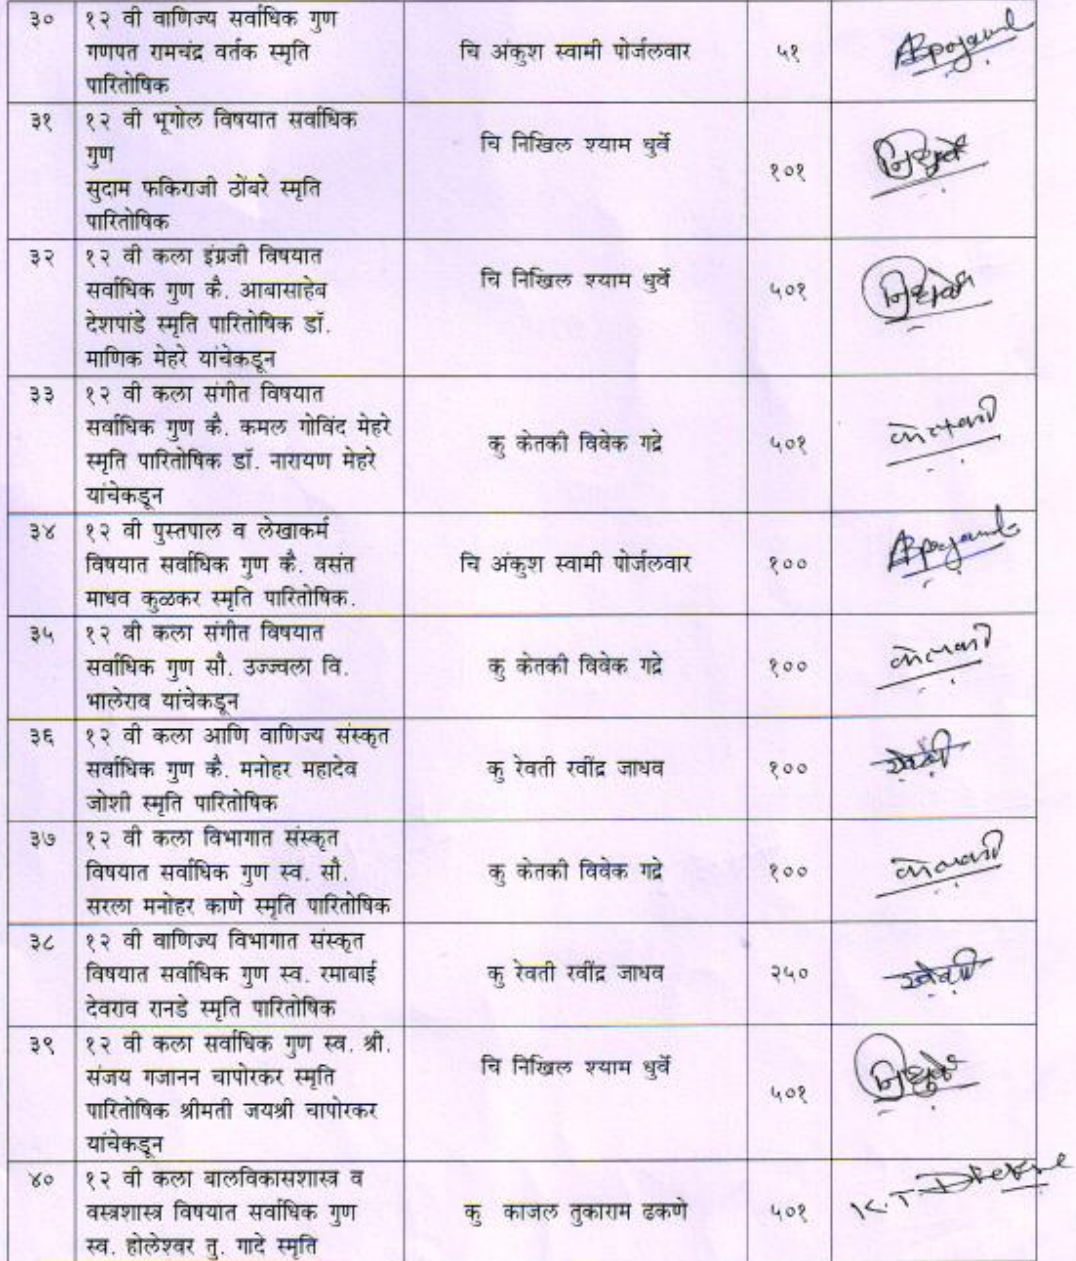 ३० १२ वी वाणिज्य सर्वाधिक गुण
गणपत रामचंद्र वर्तक स्मृति
पारितोषिक
चि अंकुश स्वामी पोर्जलवार ५१
३१ १२ वी भूगोल विषयात सर्वाधिक
गुण
सुदाम फकिराजी ठोंबरे स्मृति
पारितोषिक
चि निखिल श्याम धुर्वे १०१
३२ १२ वी कला इंग्रजी विषयात
सर्वाधिक गुण कै. आबासाहेब
देशपांडे स्मृति पारितोषिक डॉ.
माणिक मेहरे यांचेकडून
चि निखिल श्याम धुर्वे ५०१
३३ १२ वी कला संगीत विषयात
सर्वाधिक गुण कै. कमल गोविंद मेहरे
स्मृति पारितोषिक डॉ. नारायण मेहरे
यांचेकडून
कु केतकी विवेक गद्रे ५०१
३४ १२ वी पुस्तपाल व लेखाकर्म
विषयात सर्वाधिक गुण कै. वसंत
माधव कुळकर स्मृति पारितोषिक.
चि अंकुश स्वामी पोर्जलवार १००
३५ १२ वी कला संगीत विषयात
सर्वाधिक गुण सौ. उज्ज्वला वि.
भालेराव यांचेकडून
कु केतकी विवेक गद्रे १००
३६ १२ वी कला आणि वाणिज्य संस्कृत
सर्वाधिक गुण कै. मनोहर महादेव
जोशी स्मृति पारितोषिक
कु रेवती रवींद्र जाधव १००
३७ १२ वी कला विभागात संस्कृत
विषयात सर्वाधिक गुण स्व. सौ.
सरला मनोहर काणे स्मृति पारितोषिक
कु केतकी विवेक गद्रे १००
३८ १२ वी वाणिज्य विभागात संस्कृत
विषयात सर्वाधिक गुण स्व. रमाबाई
देवराव रानडे स्मृति पारितोषिक
कु रेवती रवींद्र जाधव २५०
३९ १२ वी कला सर्वाधिक गुण स्व. श्री.
संजय गजानन चापोरकर स्मृति
पारितोषिक श्रीमती जयश्री चापोरकर
यांचेकडून
चि निखिल श्याम धुर्वे ५०१
४० १२ वी कला बालविकासशास्त्र व
वस्त्रशास्त्र विषयात सर्वाधिक गुण
स्व. होलेश्वर तु. गादे स्मृति
कु काजल तुकाराम ढकणे ५०१